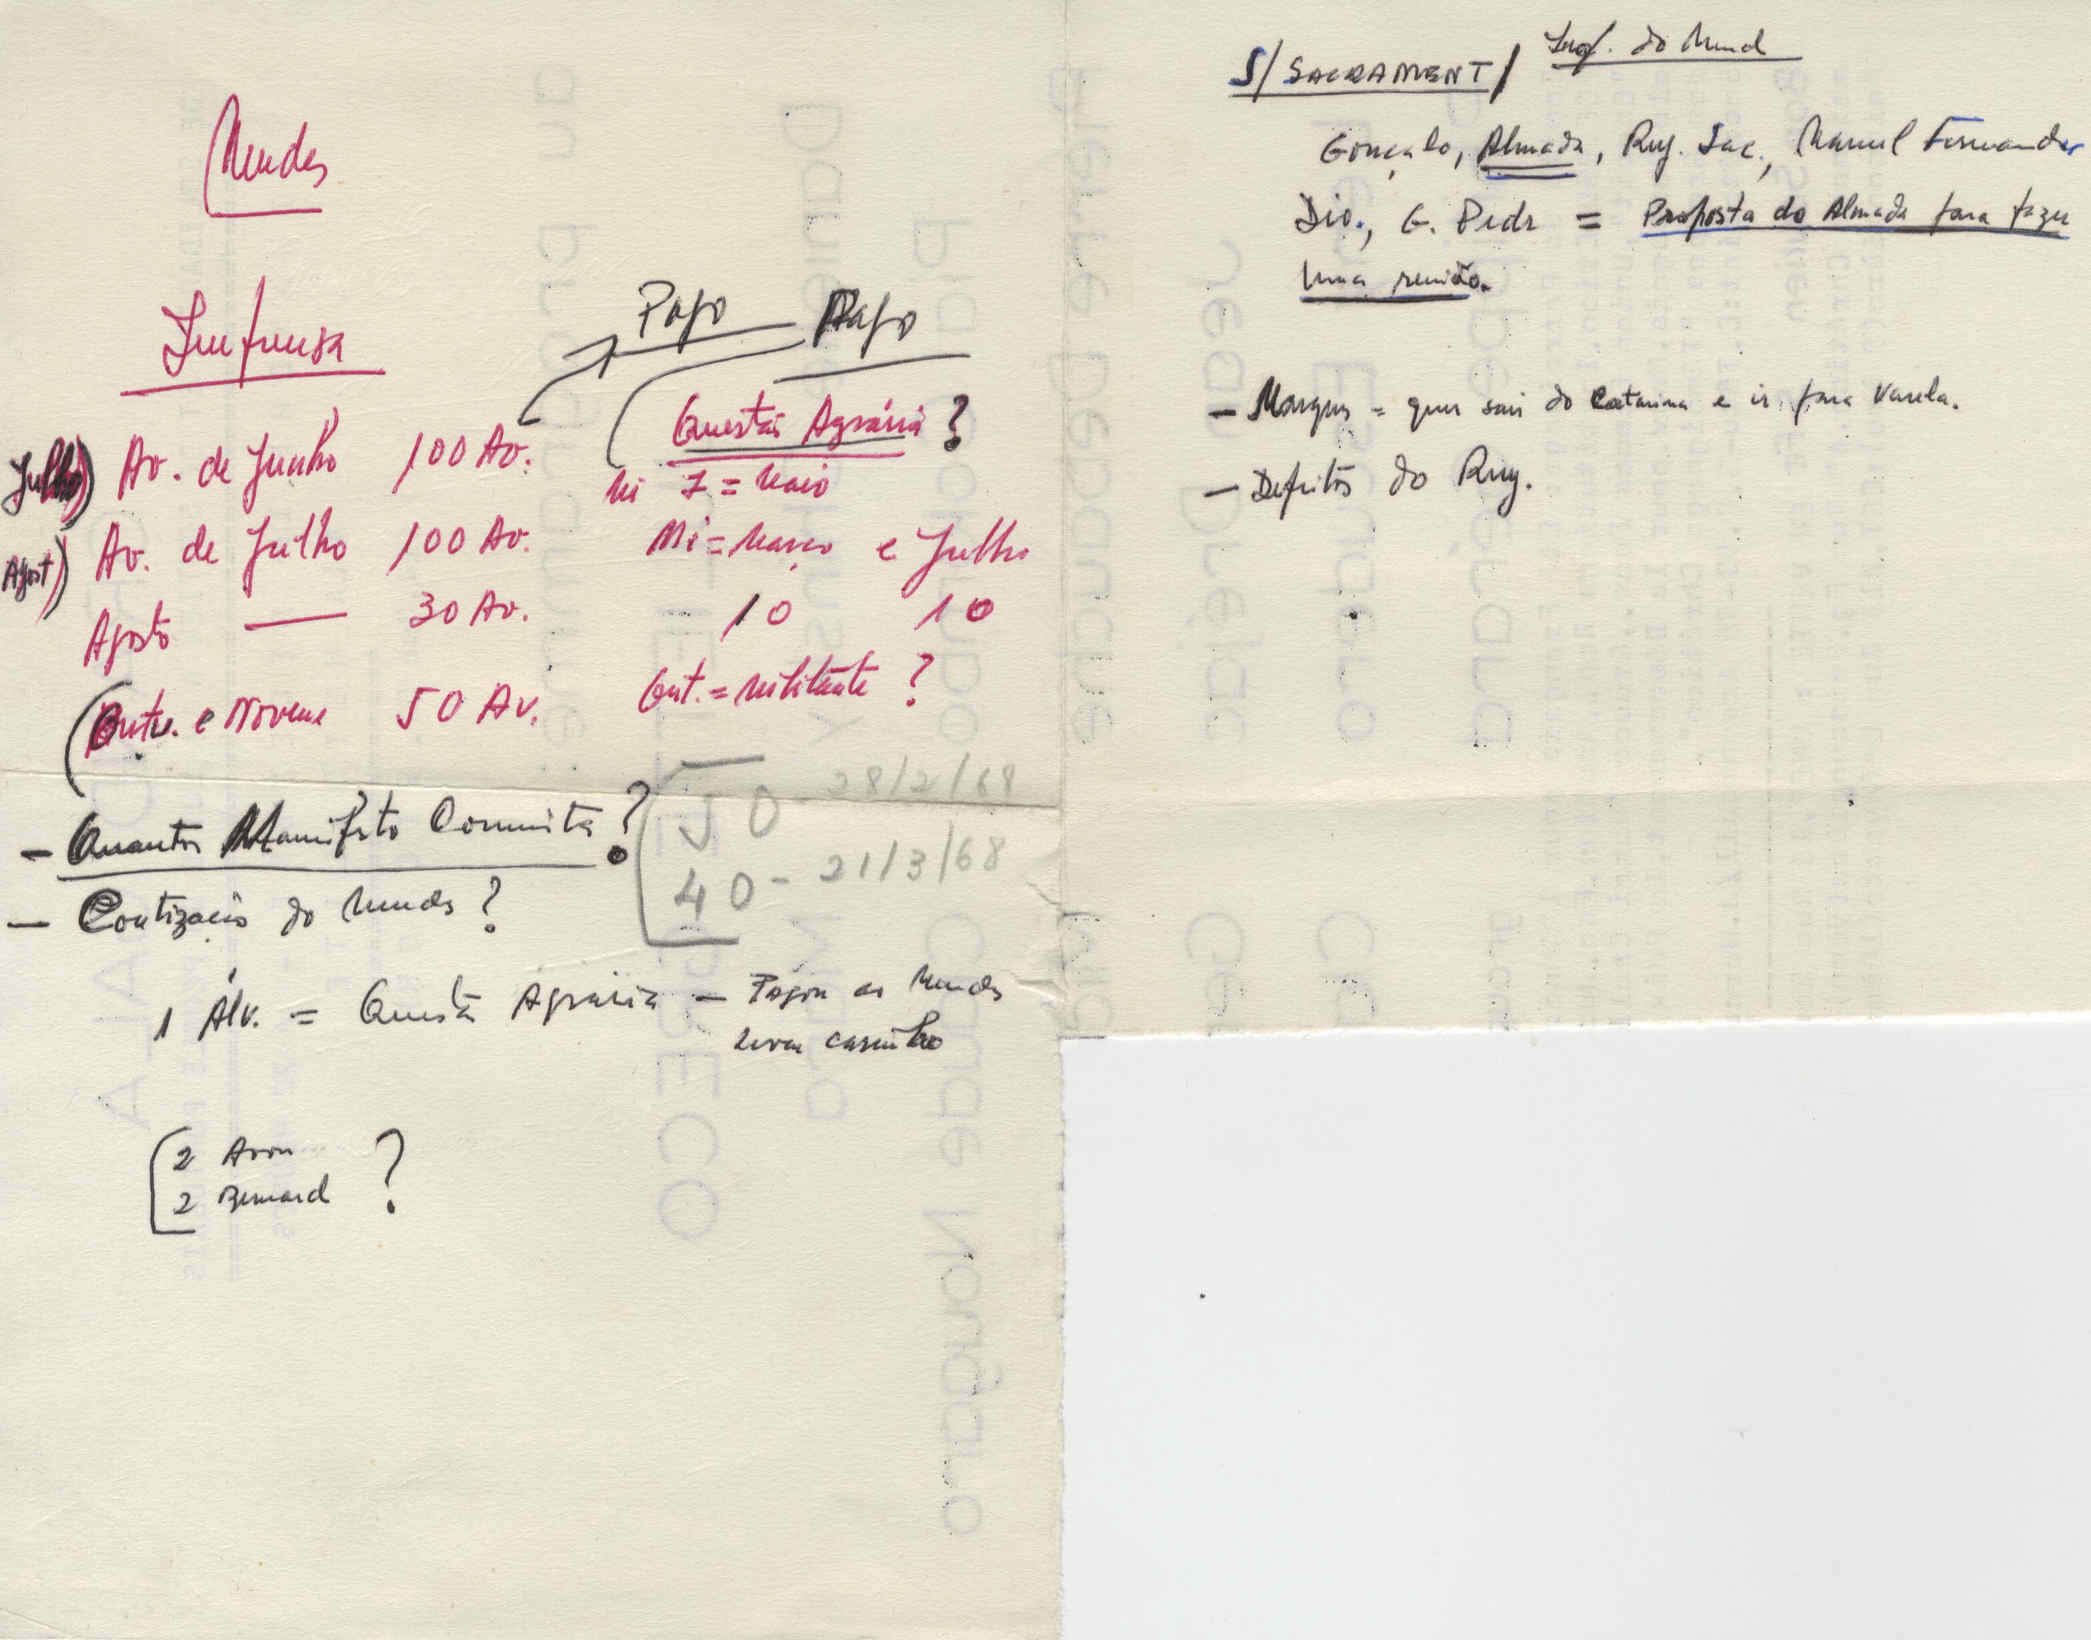 Mendes
Imprensa
Pago Pago
Julho) Av. de Junho 100 Av.
Questão Agrária?
Mi I = Maio
Agost) Av. de Julho 100 Av.
Mi = Março e Julho
Agosto — 30 Av.
10 10
(Outu. e Novem 50 Av.
Out. = Militante?
50 - 28/2/68
40 - 21/3/68
- Quantos Manifesto Comunista?
- Cotização do Mendes?
1 Álv. = Questã Agrária - Pagou ao Mendes
2 Avon
2 Bernard ?
S/ SACRAMENT / Inf. do Mend
Gonçalo, Almada, Ruy. Sac., Manuel Fernandes
Dio., G. Pedr = Proposta do Almada para fazer
uma reunião.
- Marques = quer sair do Catarina e ir para Varela.
- Defeitos do Ruy.